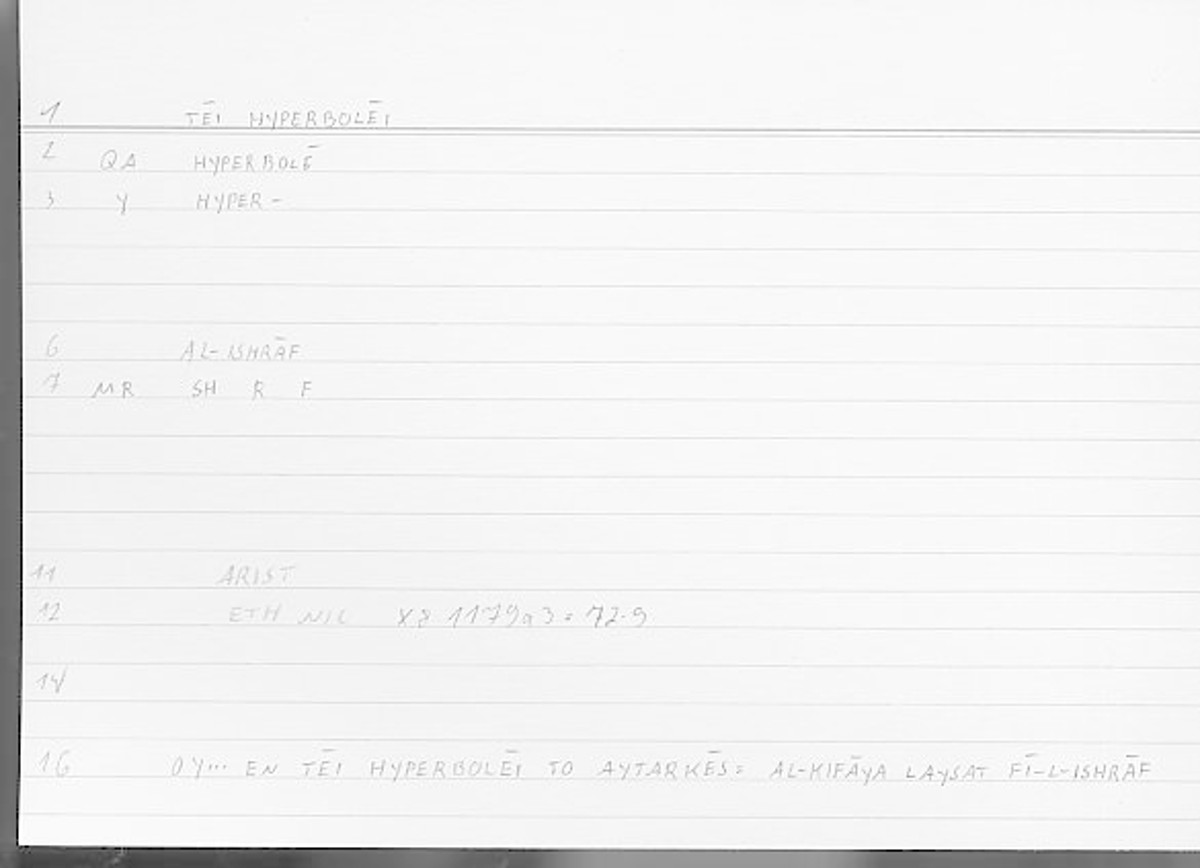 1 TĒI HYPERBOLĒI
2 QA HYPERBOLĒ
3 Y HYPER-
6 AL-ISHRĀF
7 MR SH R F
11 ARIST
12 ETH NIC X8 1179a3 = 72.9
14
16 OY... EN TĒI HYPERBOLĒI TO AYTARKĒS = AL-KIFĀYA LAYSAT FĪ-L-ISHRĀF